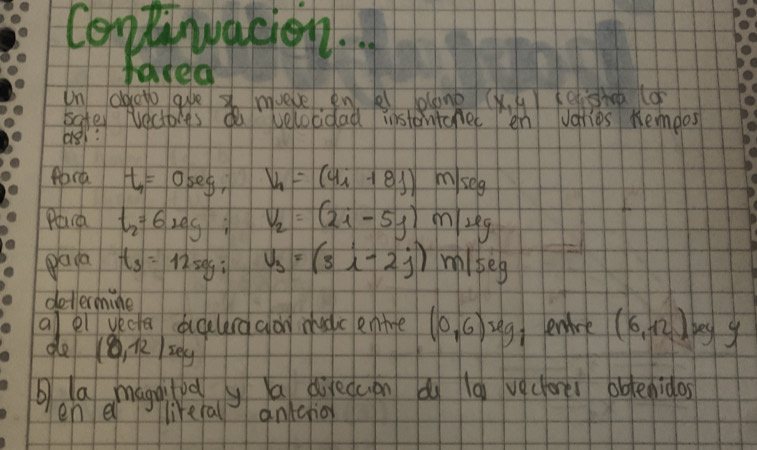 Continuación...
tarea
Un objeto que se mueve en el plano (x,y) registra los
vectores de velocidad instantanec en varios tiempos
así:
Para t₁= 0seg; V₁ = (4i +8j) m/seg
Para t₂=6seg ; V₂ = (2i -5j) m/seg
para t₃= 12seg; V₃ = (3 i- 2j) m/seg
determine
a) el vector aceleracion entre (0,6)seg; entre (6,12)seg y
de (0,12)seg
b) la magnitud y la direccion de los vectores obtenidos
en el literal anterior